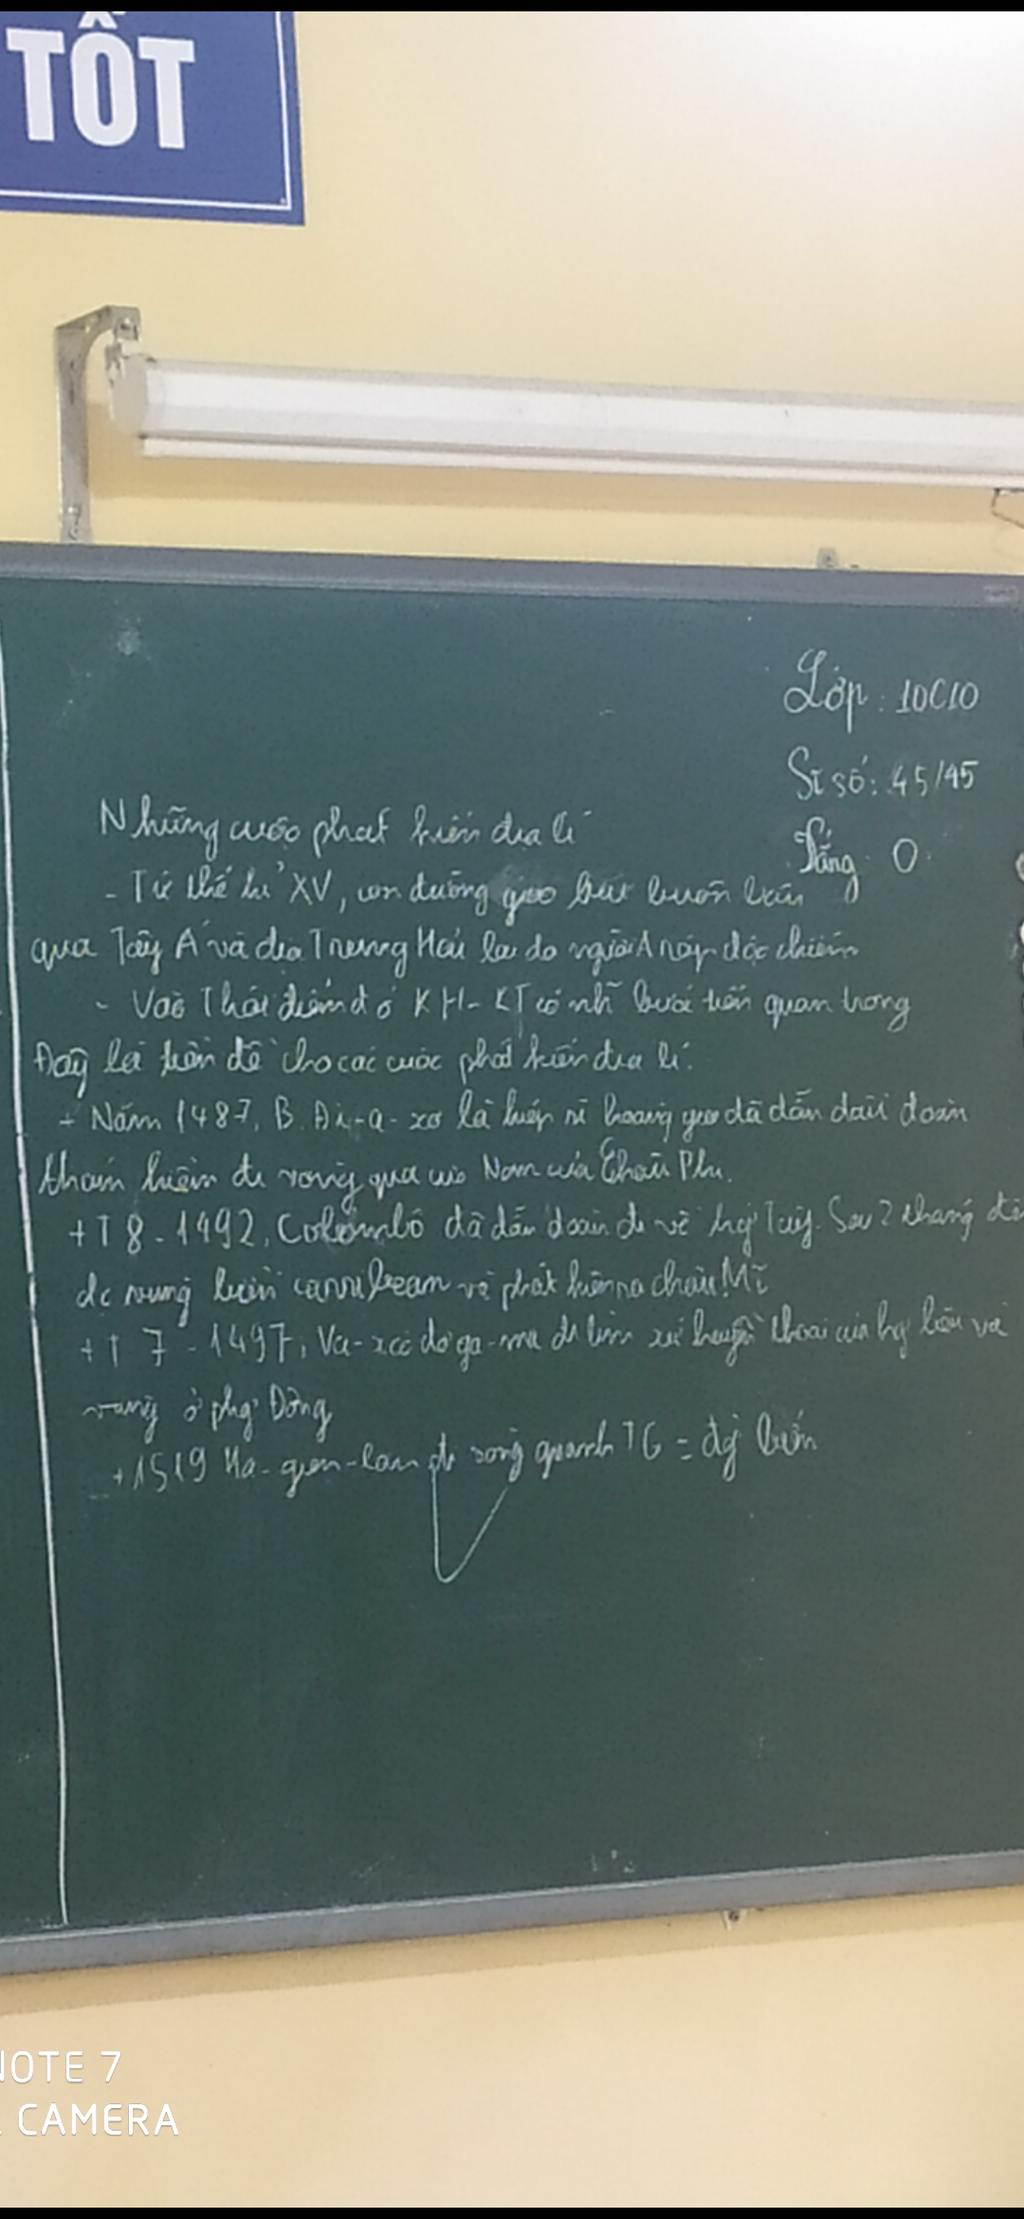 TỐT
Lớp: 10C10
Sĩ số: 45/45
Vắng: 0
Những cuộc phát kiến địa lí
- Từ thế kỉ XV, con đường giao lưu buôn bán
qua Tây Á và địa Trung Hải lại do người A rập độc chiếm
- Vào Thời điểm đó KH-KT có nh~ bước tiến quan trọng
Đây là tiền đề cho các cuộc phát kiến địa lí.
+ Năm 1487, B. Đi-a-xơ là hiệp sĩ hoàng gia đã dẫn đầu đoàn
thám hiểm đi vòng qua cực Nam của Châu Phi.
+ T 8-1492, Colombô đã dẫn đoàn đi về hg Tây. Sau 2 tháng đến
dc vùng biển carribean và phát hiện ra châu Mĩ
+ T 7-1497, Va-xcô đơ ga-ma đi tìm xứ huyền thoại của hg liệu và
vàng ở phg Đông
+ 1519 Ma-gien-lan đi vòng quanh TG = đg biển
NOTE 7
CAMERA